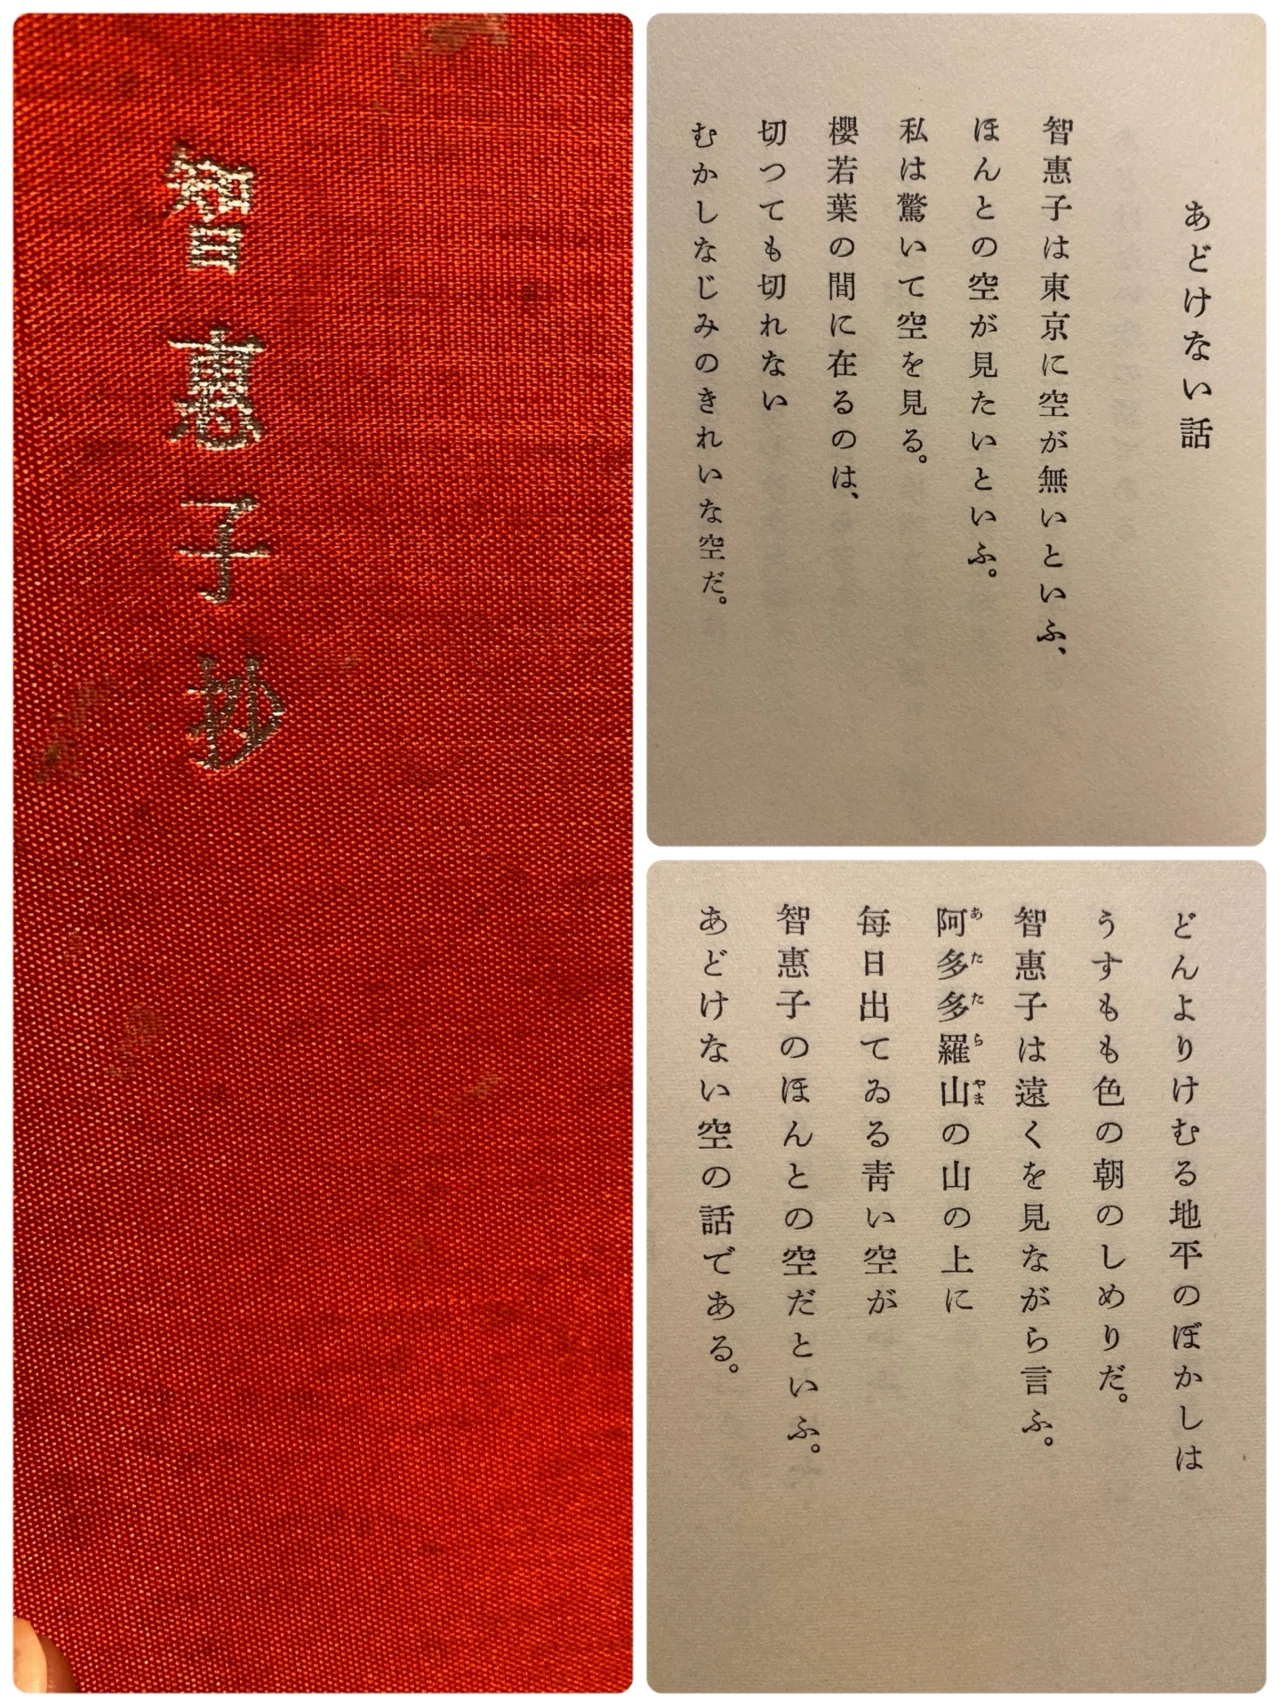 智惠子抄
あどけない話
智惠子は東京に空が無いといふ、
ほんとの空が見たいといふ。
私は驚いて空を見る。
櫻若葉の間に在るのは、
切つても切れない
むかしなじみのきれいな空だ。
どんよりけむる地平のぼかしは
うすもも色の朝のしめりだ。
智惠子は遠くを見ながら言ふ。
阿多多羅山の山の上に
あたたらやま
毎日出てゐる靑い空が
智惠子のほんとの空だといふ。
あどけない空の話である。